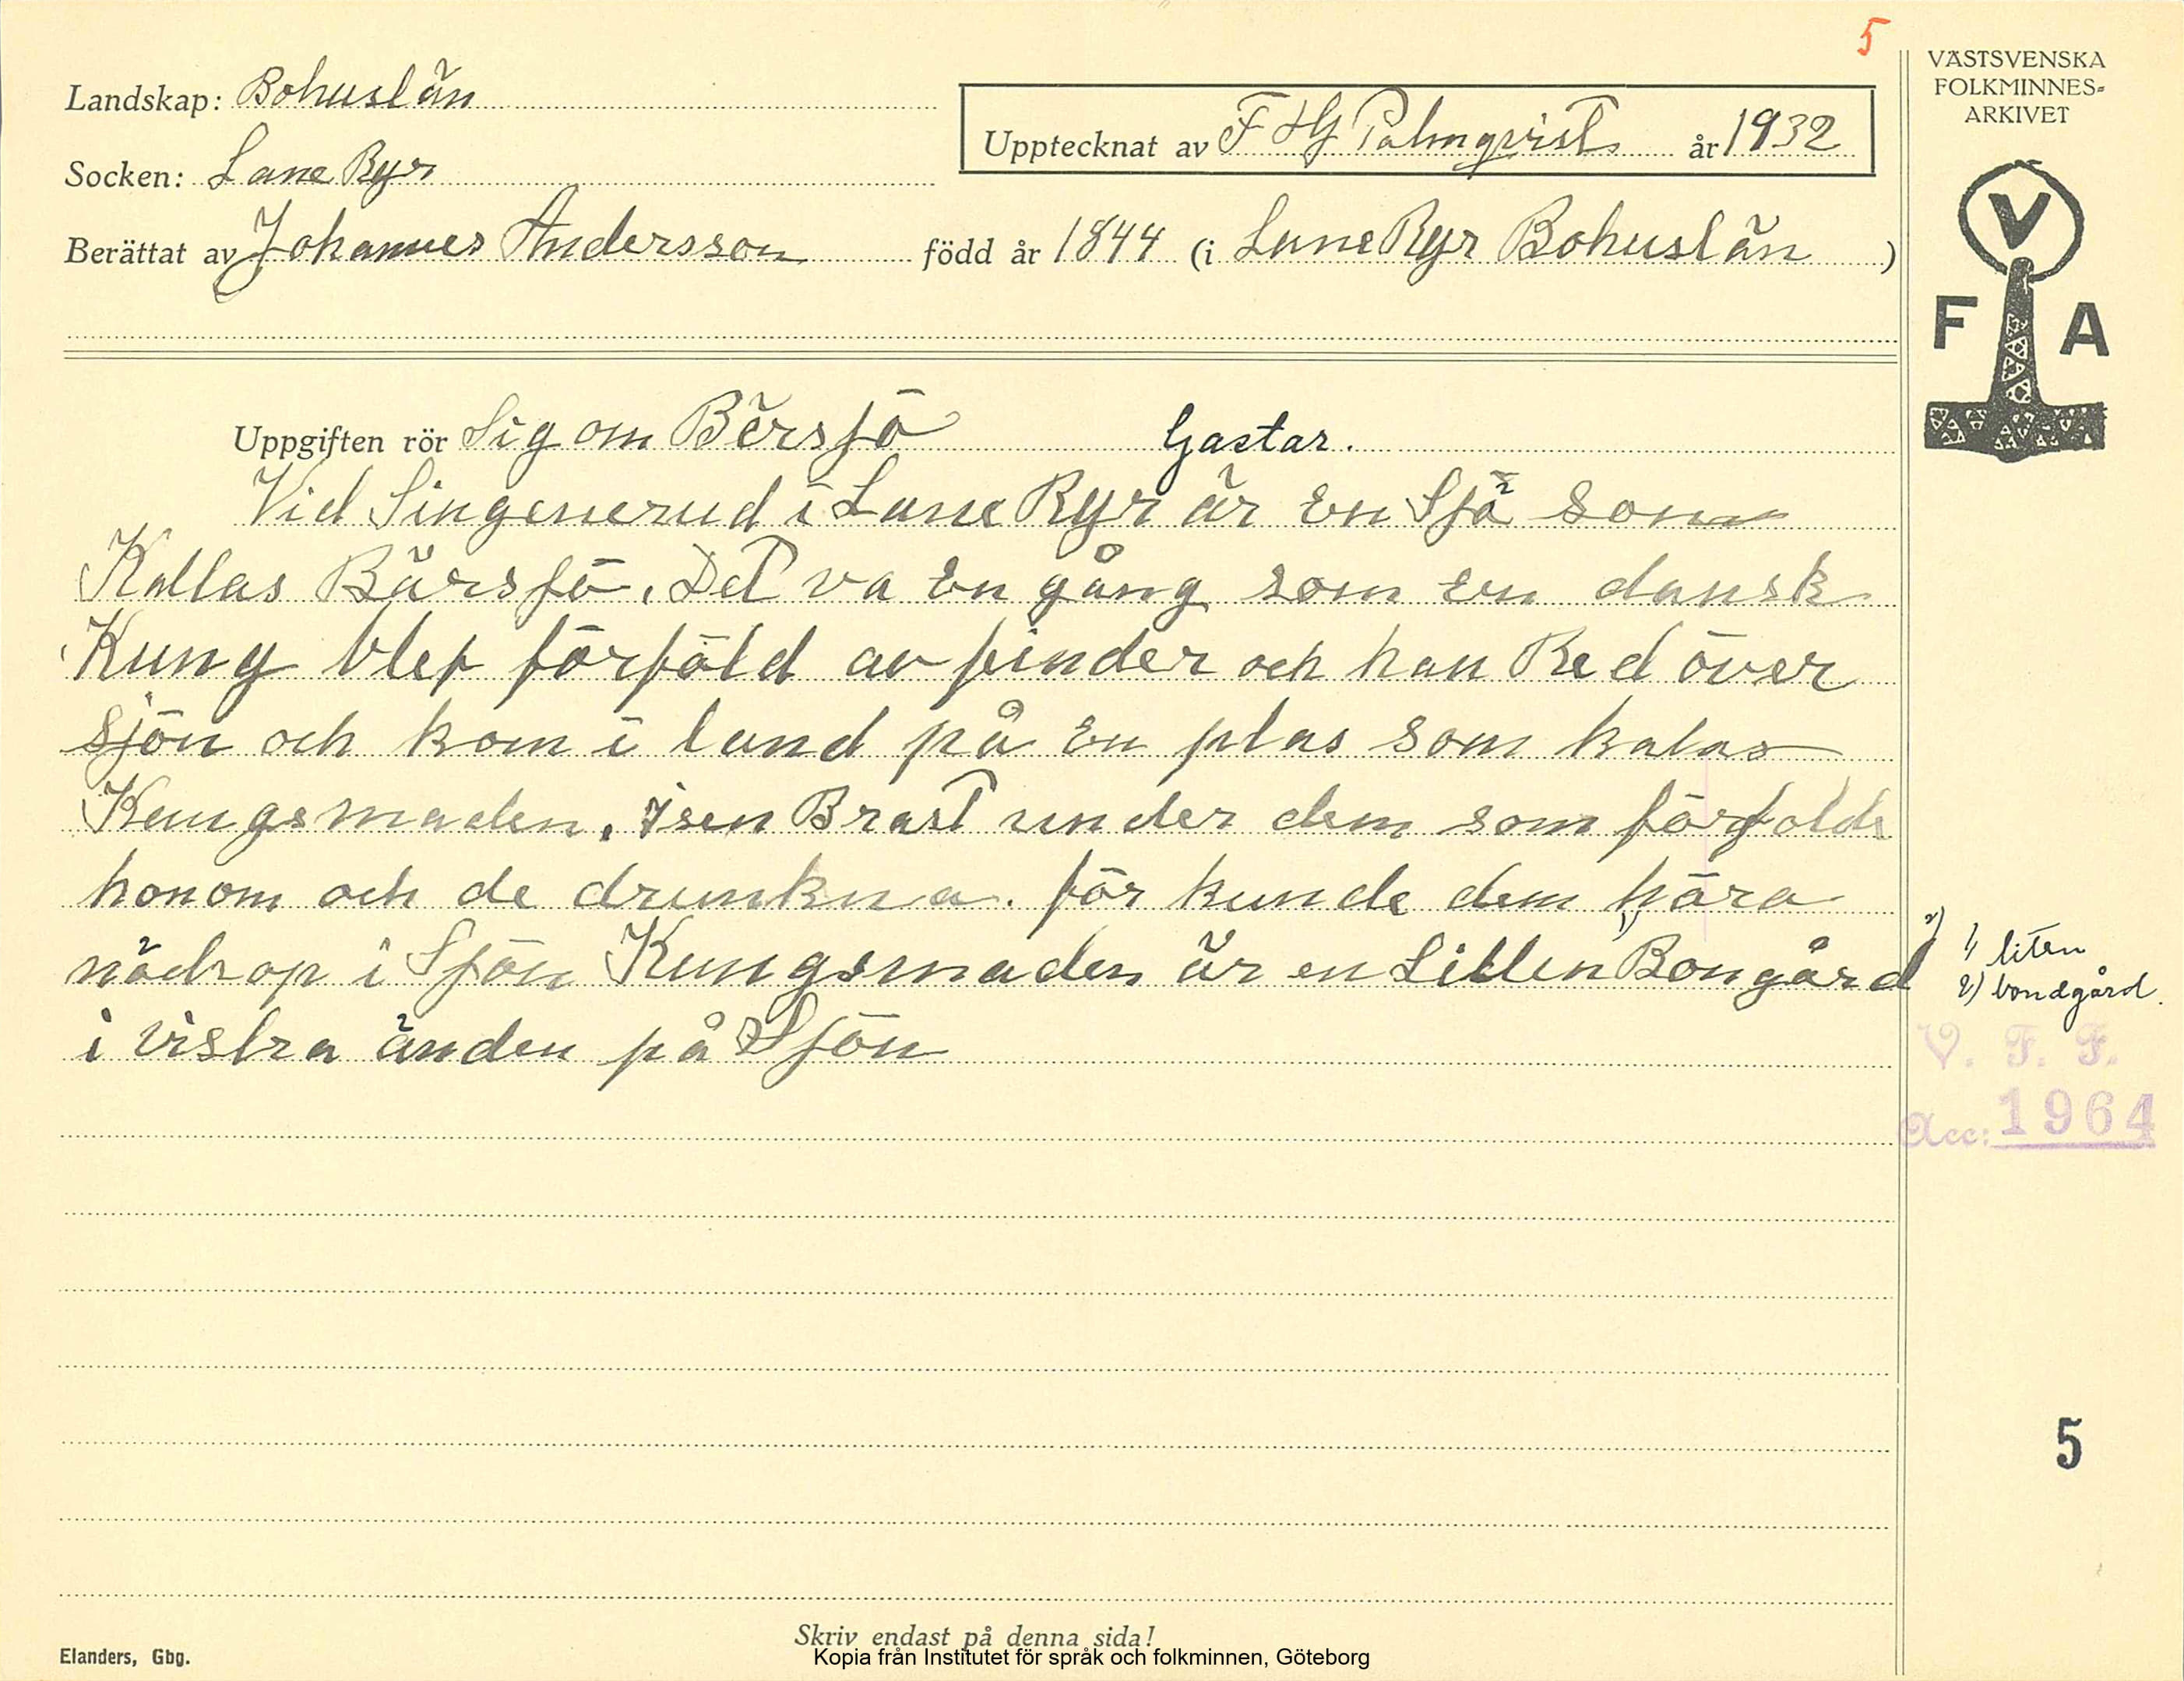 5
VÄSTSVENSKA
FOLKMINNES-
ARKIVET
Landskap: Bohuslän
Upptecknat av F HG Palmqvist år 1932
Socken: Lane Ryr
Berättat av Johannes Andersson född år 1844 (i Lane Ryr Bohuslän )
V
F A
Uppgiften rör Sig om Bërsjö Gastar.
Vid Singenerud i Lane Ryr är En Sjö som
Kallas Bärsjö. Det va En gång som En dansk
Kung blef förföld av finder och han Red över
sjön och kom i land på En plas som kalas
Kungsmaden. isen Brast under dem som förfolde
honom och de drunkna. för kunde dem höra
nödrop i Sjön Kungsmaden är en Litlen 1) Bongård 2)
i vistra änden på Sjön
1) liten
2) bondgård.
V. F. F.
Acc: 1964
5
Skriv endast på denna sida!
Elanders, Gbg.
Kopia från Institutet för språk och folkminnen, Göteborg